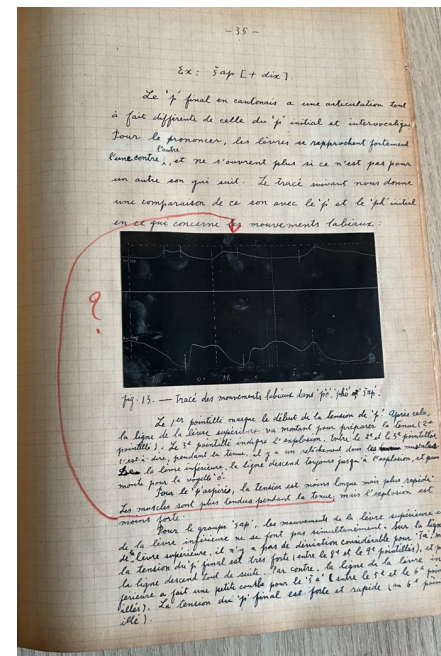 — 35 —
Ex: šap [+ dix].
Le 'p' final en cantonais a une articulation tout
à fait différente de celle du 'p' initial et intervocalique
Pour le prononcer, les lèvres se rapprochent fortement
l'une contre l'autre, et ne s'ouvrent plus si ce n'est pas pour
un autre son qui suit. Le tracé suivant nous donne
une comparaison de ce son avec le 'p' et le 'ph' initial
en ce qui concerne les mouvements labiaux :
?
fig. 13. — Tracé des mouvements labiaux dans 'po', 'pho' et 'šap'.
Le 1er pointillé marque le début de la tension de 'p'. Après cela,
la ligne de la lèvre supérieure va montant pour préparer la tenue (2e
pointillé). Le 3e pointillé indique l'explosion. Entre le 2e et le 3e pointillés,
c'est-à-dire, pendant la tenue, il y a un relâchement dans les muscles
de la lèvre inférieure, la ligne descend toujours jusqu'à l'explosion, et puis
monte pour la voyelle 'o'.
Pour le 'p' aspiré, la tension est moins longue mais plus rapide.
Les muscles sont plus tendus pendant la tenue, mais l'explosion est
moins forte.
Pour le groupe 'šap', les mouvements de la lèvre supérieure et
de la lèvre inférieure ne se font pas simultanément. Sur la ligne
de la lèvre supérieure, il n'y a pas de déviation considérable pour 'ša', mais
la tension du 'p' final est très forte (entre le 8e et le 9e pointillés), et puis
la ligne descend tout de suite. Par contre, la ligne de la lèvre in-
férieure a fait une petite courbe pour le 'ša' (entre le 5e et le 6e point-
illés). La tension du 'p' final est forte et rapide (au 6e point-
illé).